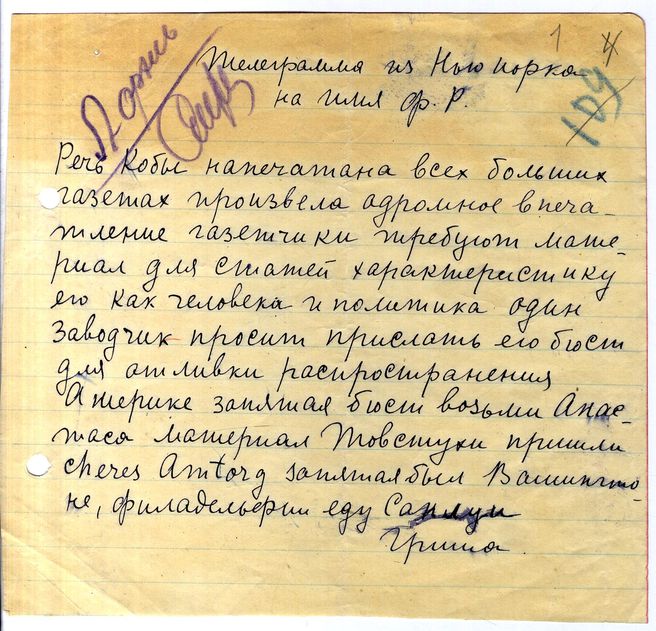 1 4
109
Л. архив
Телеграмма из Нью иорка
на имя ф. Р.
Речь Кобы напечатана всех больших
газетах произвела адромное впеча-
тление газетчики требуют мате-
риал для статей характеристику
его как человека и политика один
заводчик просит прислать его бюст
для отливки распространения
Америке запятая бюст возьми Анас-
таса материал Товстухи пришли
cheres Amtorg запятая был Вашингто-
не, филадельфии еду Санлуи
Гриша